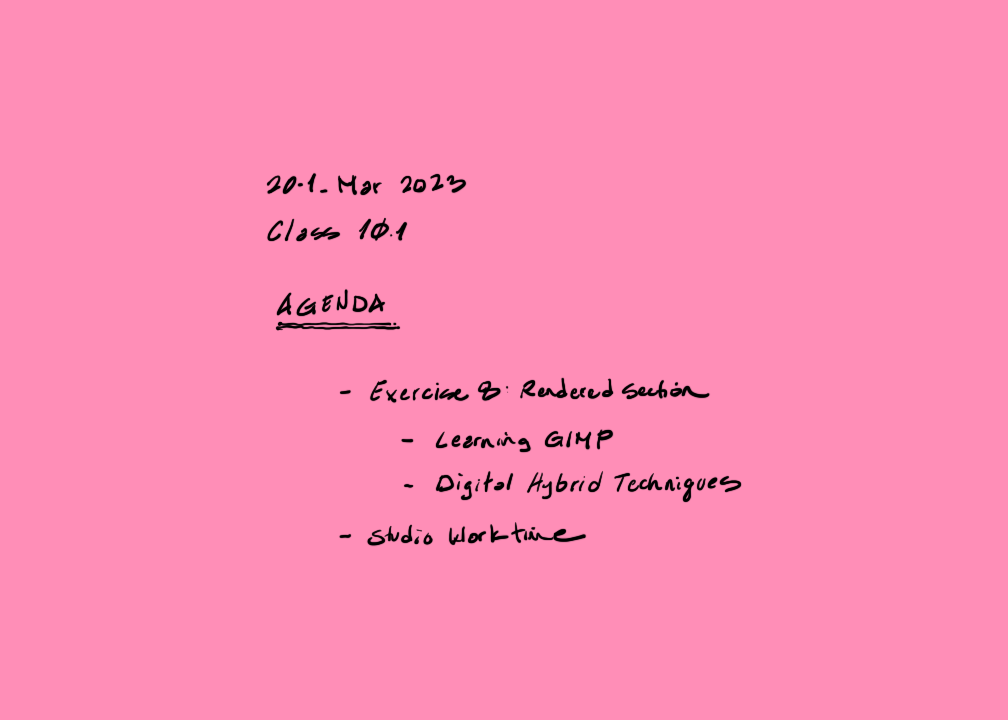 20-1-Mar 2023
Class 10.1
AGENDA
- Exercise 8: Rendered Section
- Learning GIMP
- Digital Hybrid Techniques
- Studio Work time